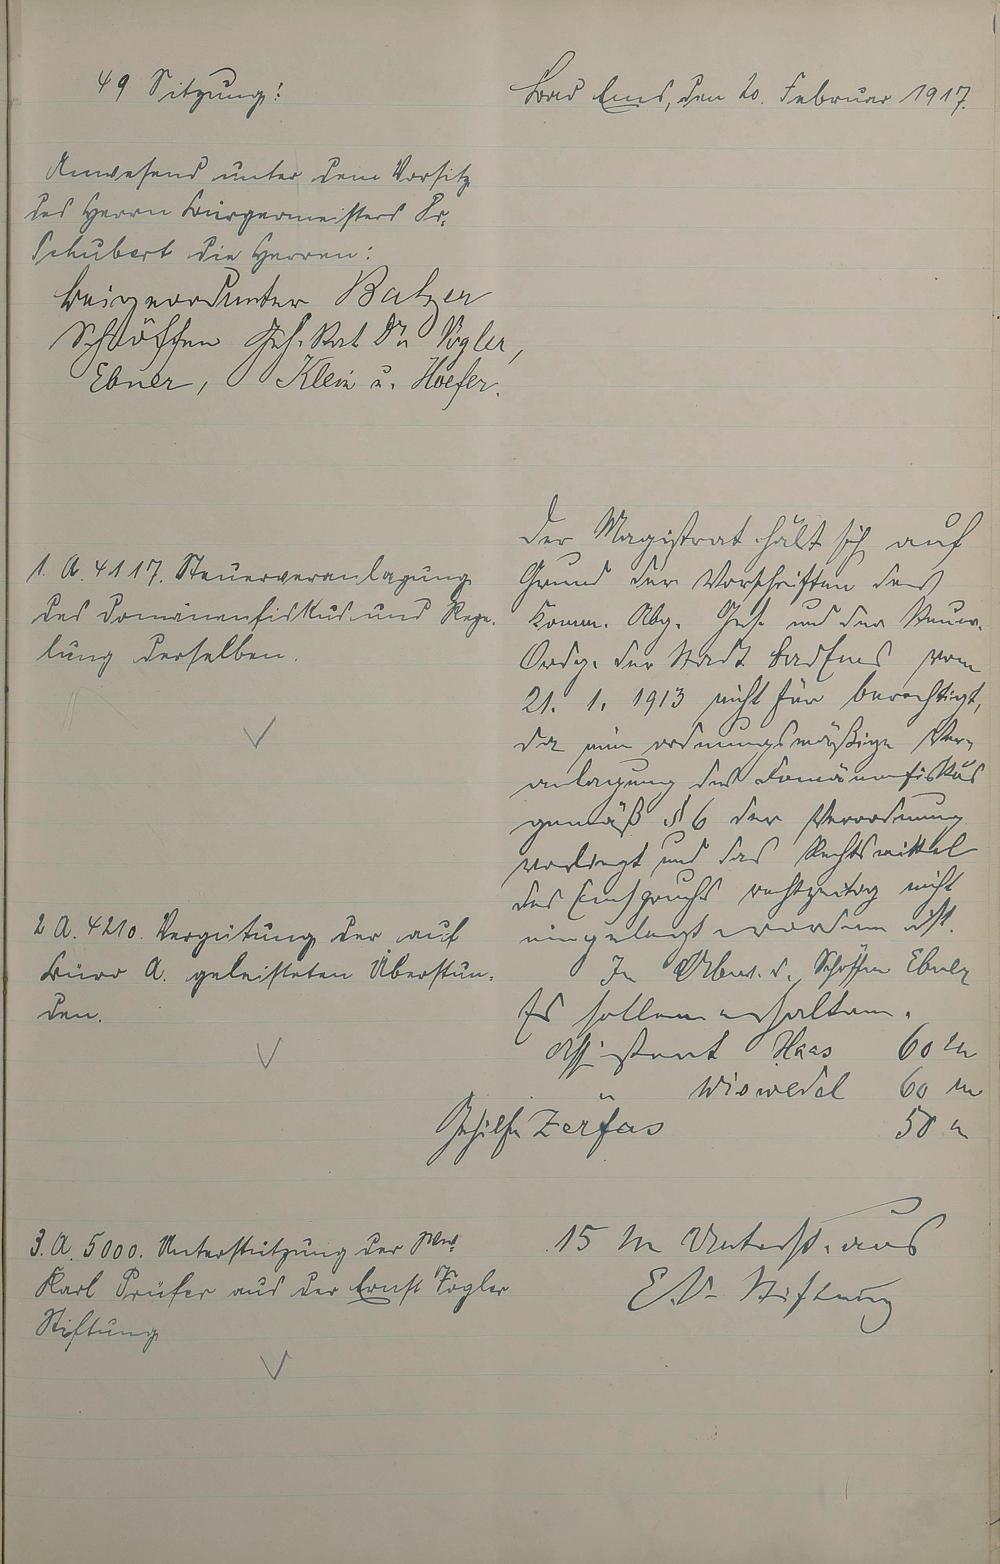 49 Sitzung:
Bad Ems, den 20. Februar 1917.
Anwesend unter dem Vorsitz
des Herrn Bürgermeisters Dr.
Schubert die Herren:
Beigeordneter Balzer
Schöffen Geh. Rat Dr. Vogler,
Ebner, Klein u. Hoefer.
1. A. 4117. Steuerveranlagung
des Domänenfiskus und Rege-
lung derselben.
Der Magistrat hält sich auf
Grund der Vorschriften des
Komm. Abg. Ges. und der Steuer-
Ordg. der Stadt Bad Ems vom
21. 1. 1913 nicht für berechtigt,
da eine ordnungsmäßige Ver-
anlagung des Domänenfiskus
gemäß § 6 der Verordnung
vorliegt und das Rechtsmittel
des Einspruchs rechtzeitig nicht
eingelegt worden ist.
2 A. 4210. Vergütung der auf
Büro A. geleisteten Überstun-
den.
In Abw. d. Schöffen Ebner
Es sollen erhalten.
Assistent Haas 60 M
Wiswedel 60 M
Gehilfe Zerfas 50 M
3. A. 5000. Unterstützung der Ww.
Karl Prüfer aus der Ernst Vogler
Stiftung
15 M Unterst. aus
E.V. Stiftung